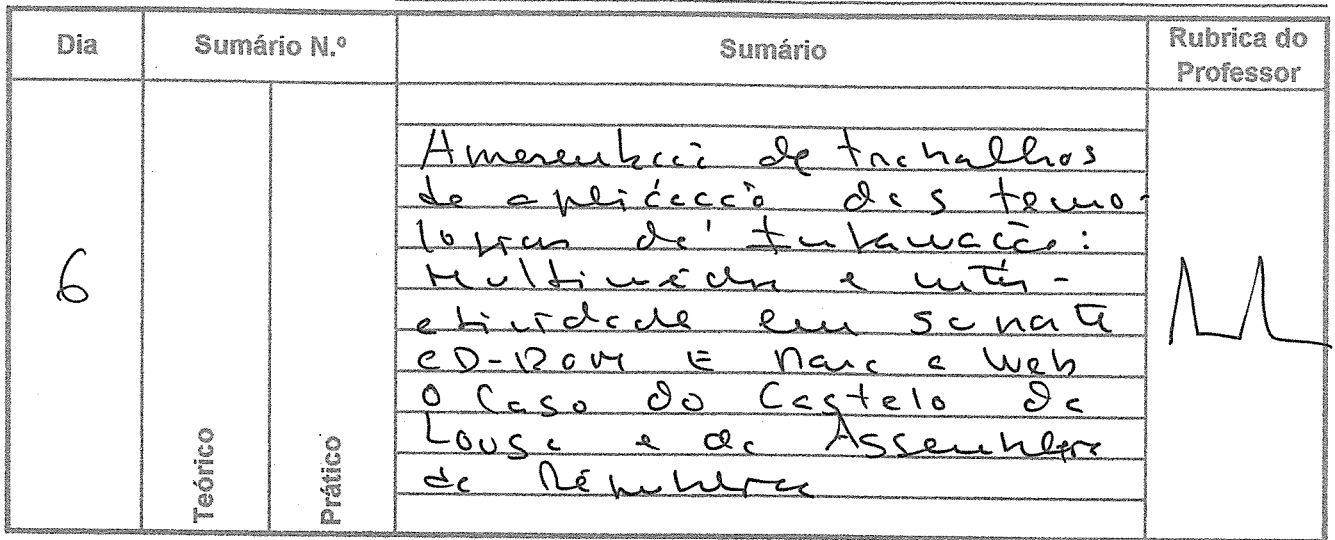 Dia
Sumário N.º
Sumário
Rubrica do
Professor
6
Teórico
Prático
Apresentação de trabalhos
de aplicação das tecno-
logias de informação:
Multimédia e inter-
atividade em suporte
CD-ROM E para a Web
O Caso do Castelo da
Lousa e da Assembleia
da República